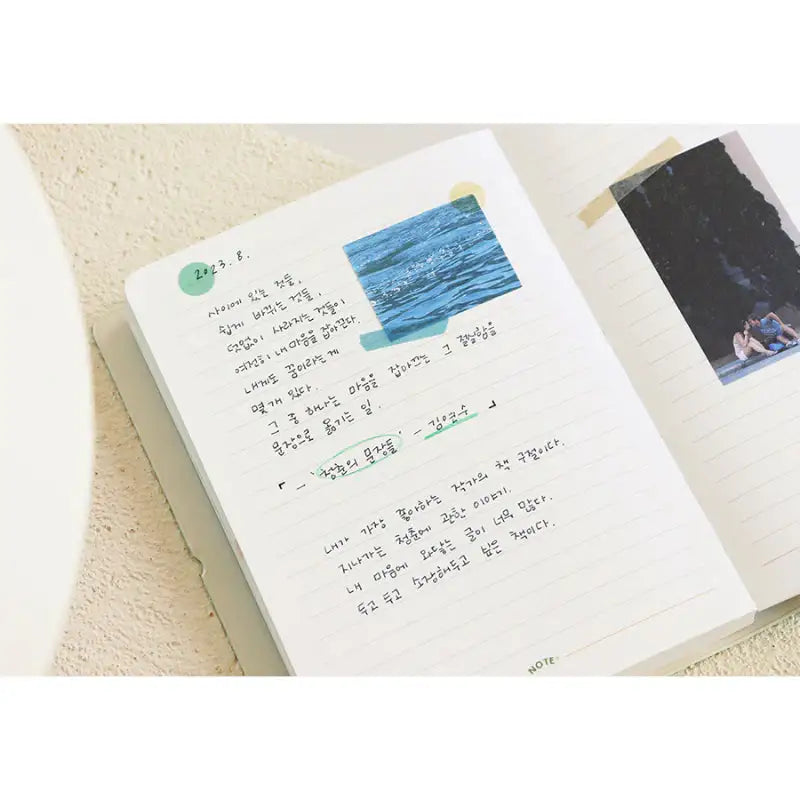 2023. 8.
사이에 있는 것들,
쉽게 바뀌는 것들,
덧없이 사라지는 것들이
여전히 내 마음을 잡아끈다.
내게도 꿈이라는게
몇 개 있다.
그 중 하나는 마음을 잡아끄는 그 절실함을
문장으로 옮기는 일.
「 - '청춘의 문장들' - 김연수 」
내가 가장 좋아하는 작가의 책 구절이다.
지나가는 청춘에 관한 이야기.
내 마음에 와닿는 글이 너무 많다.
두고 두고 소장해두고 싶은 책이다.
NOTE.